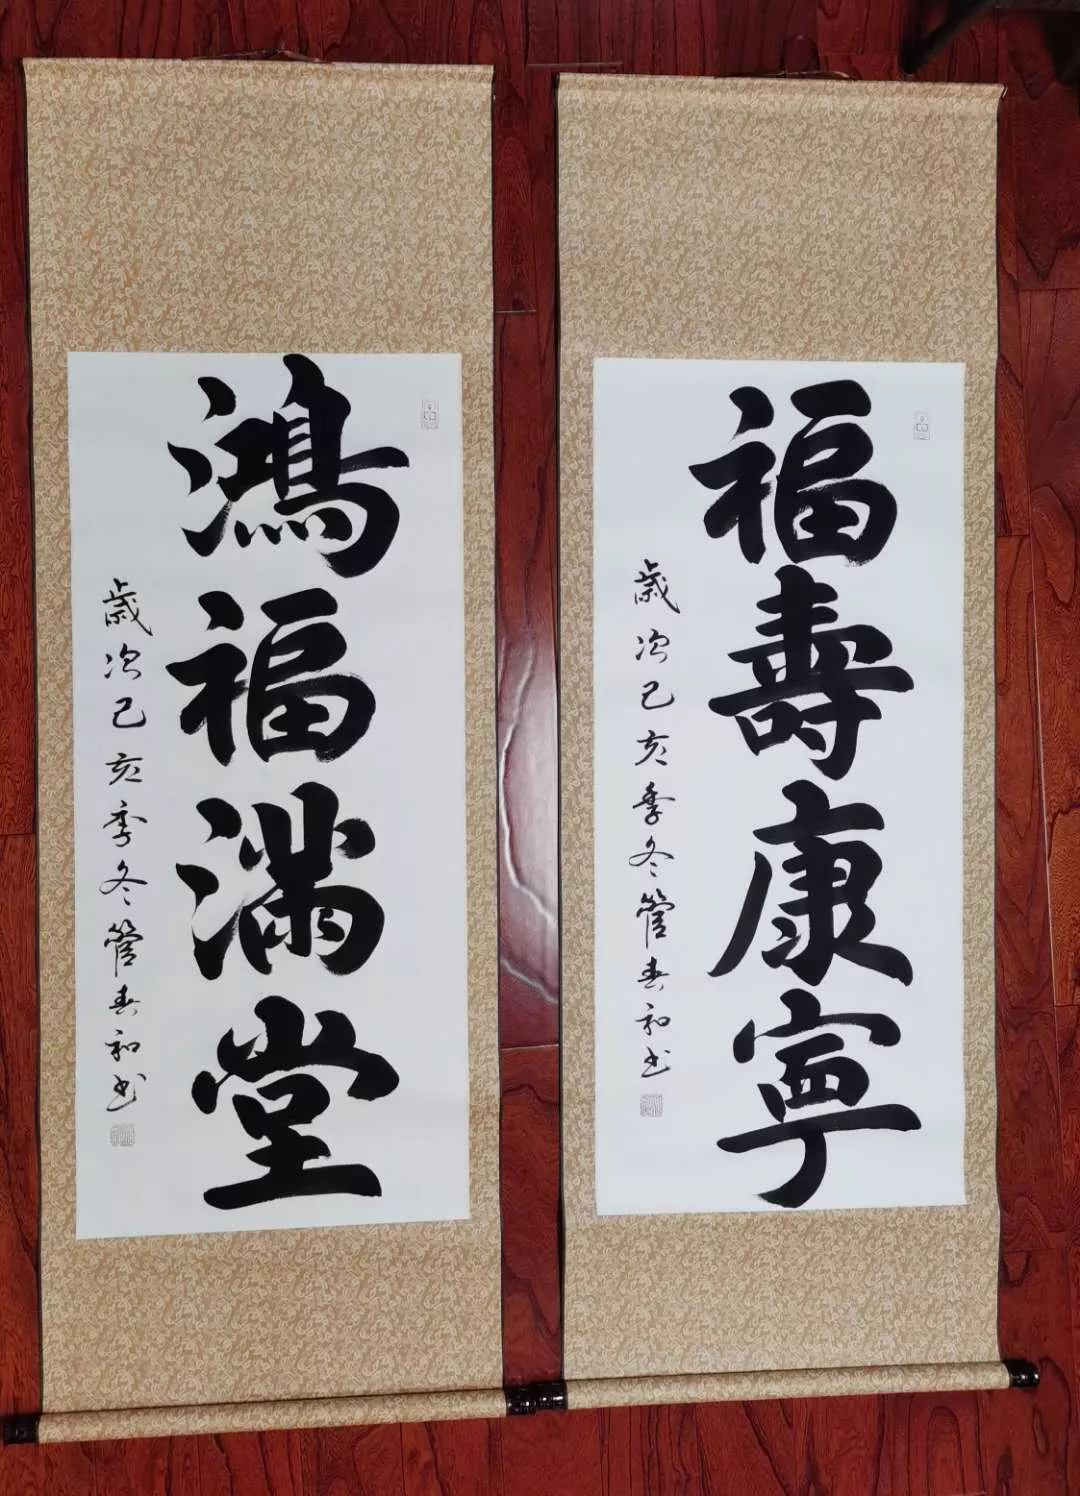 福壽康寧
歲次己亥季冬管春和书
鴻福滿堂
歲次己亥季冬管春和书